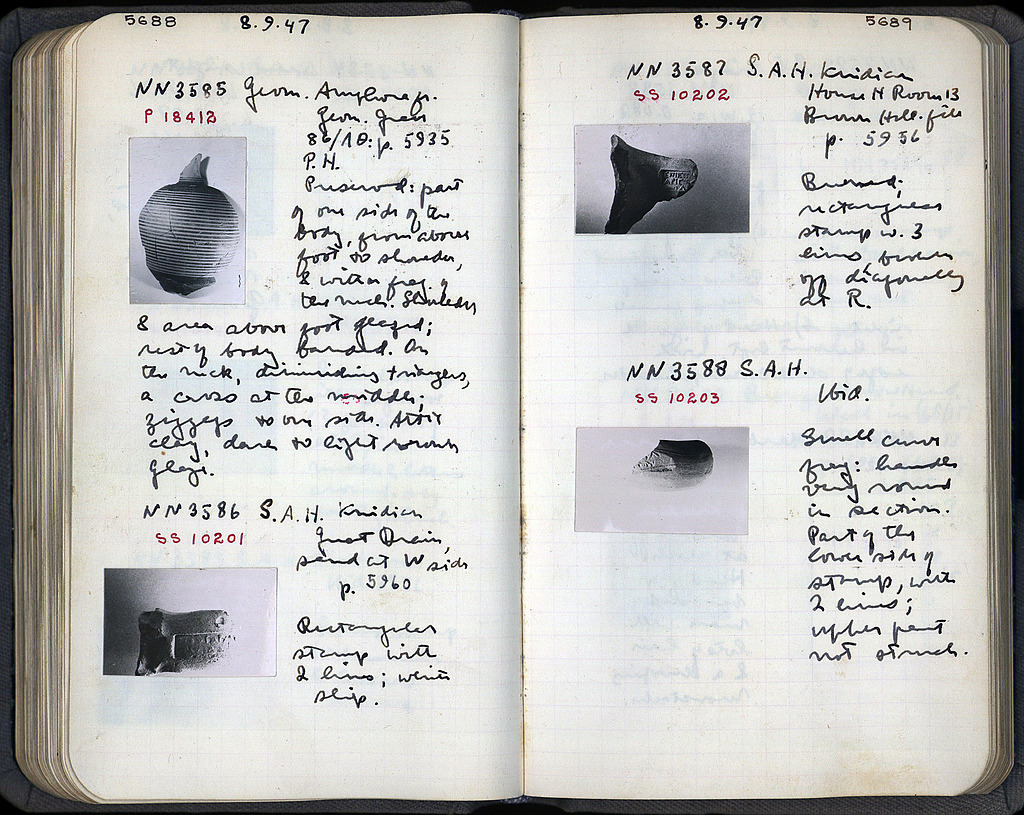 5688
8.9.47
NN 3585 Geom. Amphora fr.
P 18412
Geom. Grave
86/ΙΘ: p. 5935
P.H.
Preserved: part
of one side of the
body, from above
foot to shoulder,
& with a frag. of
the neck. Shoulder
& area above foot glazed;
rest of body banded. On
the neck, diminishing triangles,
a cross at the middle;
zigzags to one side. Attic
clay, dark to light brown
glaze.
NN 3586 S.A.H. Knidian
SS 10201
Great Drain,
sand at W side
p. 5960
Rectangular
stamp with
2 lines; white
slip.
8.9.47
5689
NN 3587 S.A.H. Knidian
SS 10202
House H Room 13
Brown Hell. fill
p. 5956
Burned;
rectangular
stamp w. 3
lines, broken
off diagonally
at R.
NN 3588 S.A.H.
SS 10203
Ibid.
Small curve
frag: handle
very round
in section.
Part of the
lower side of
stamp, with
2 lines;
upper part
not struck.